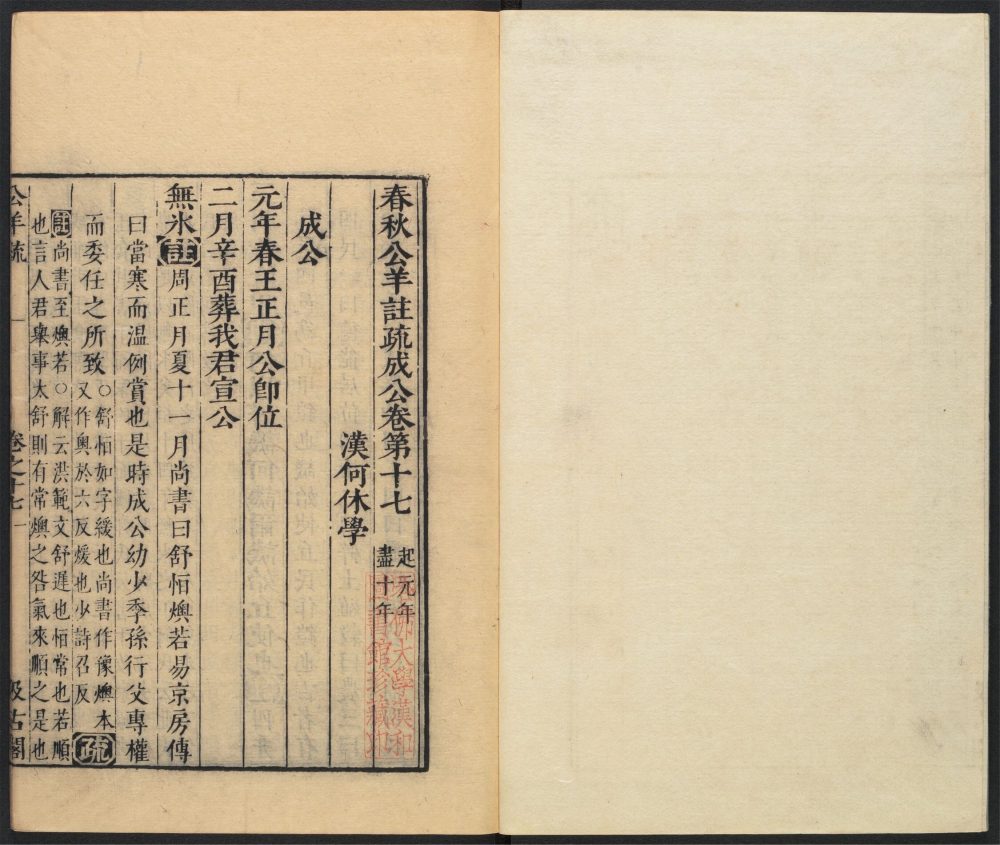 春秋公羊註疏成公卷第十七
起元年
盡十年
漢何休學
成公
元年春王正月公即位
二月辛酉葬我君宣公
無冰註周正月夏十一月尚書曰舒恒燠若易京房傳
曰當寒而溫例賞也是時成公幼少季孫行父專權
而委任之所致
○舒恒如字緩也尚書作豫燠本
又作奧於六反煖也少詩召反
疏
註尚書至燠若○解云洪範文舒遲也恒常也若順
也言人君舉事太舒則有常燠之咎氣來順之是也
公羊疏
卷之十七
一
汲古閣
哈佛大學漢和
圖書館珍藏印